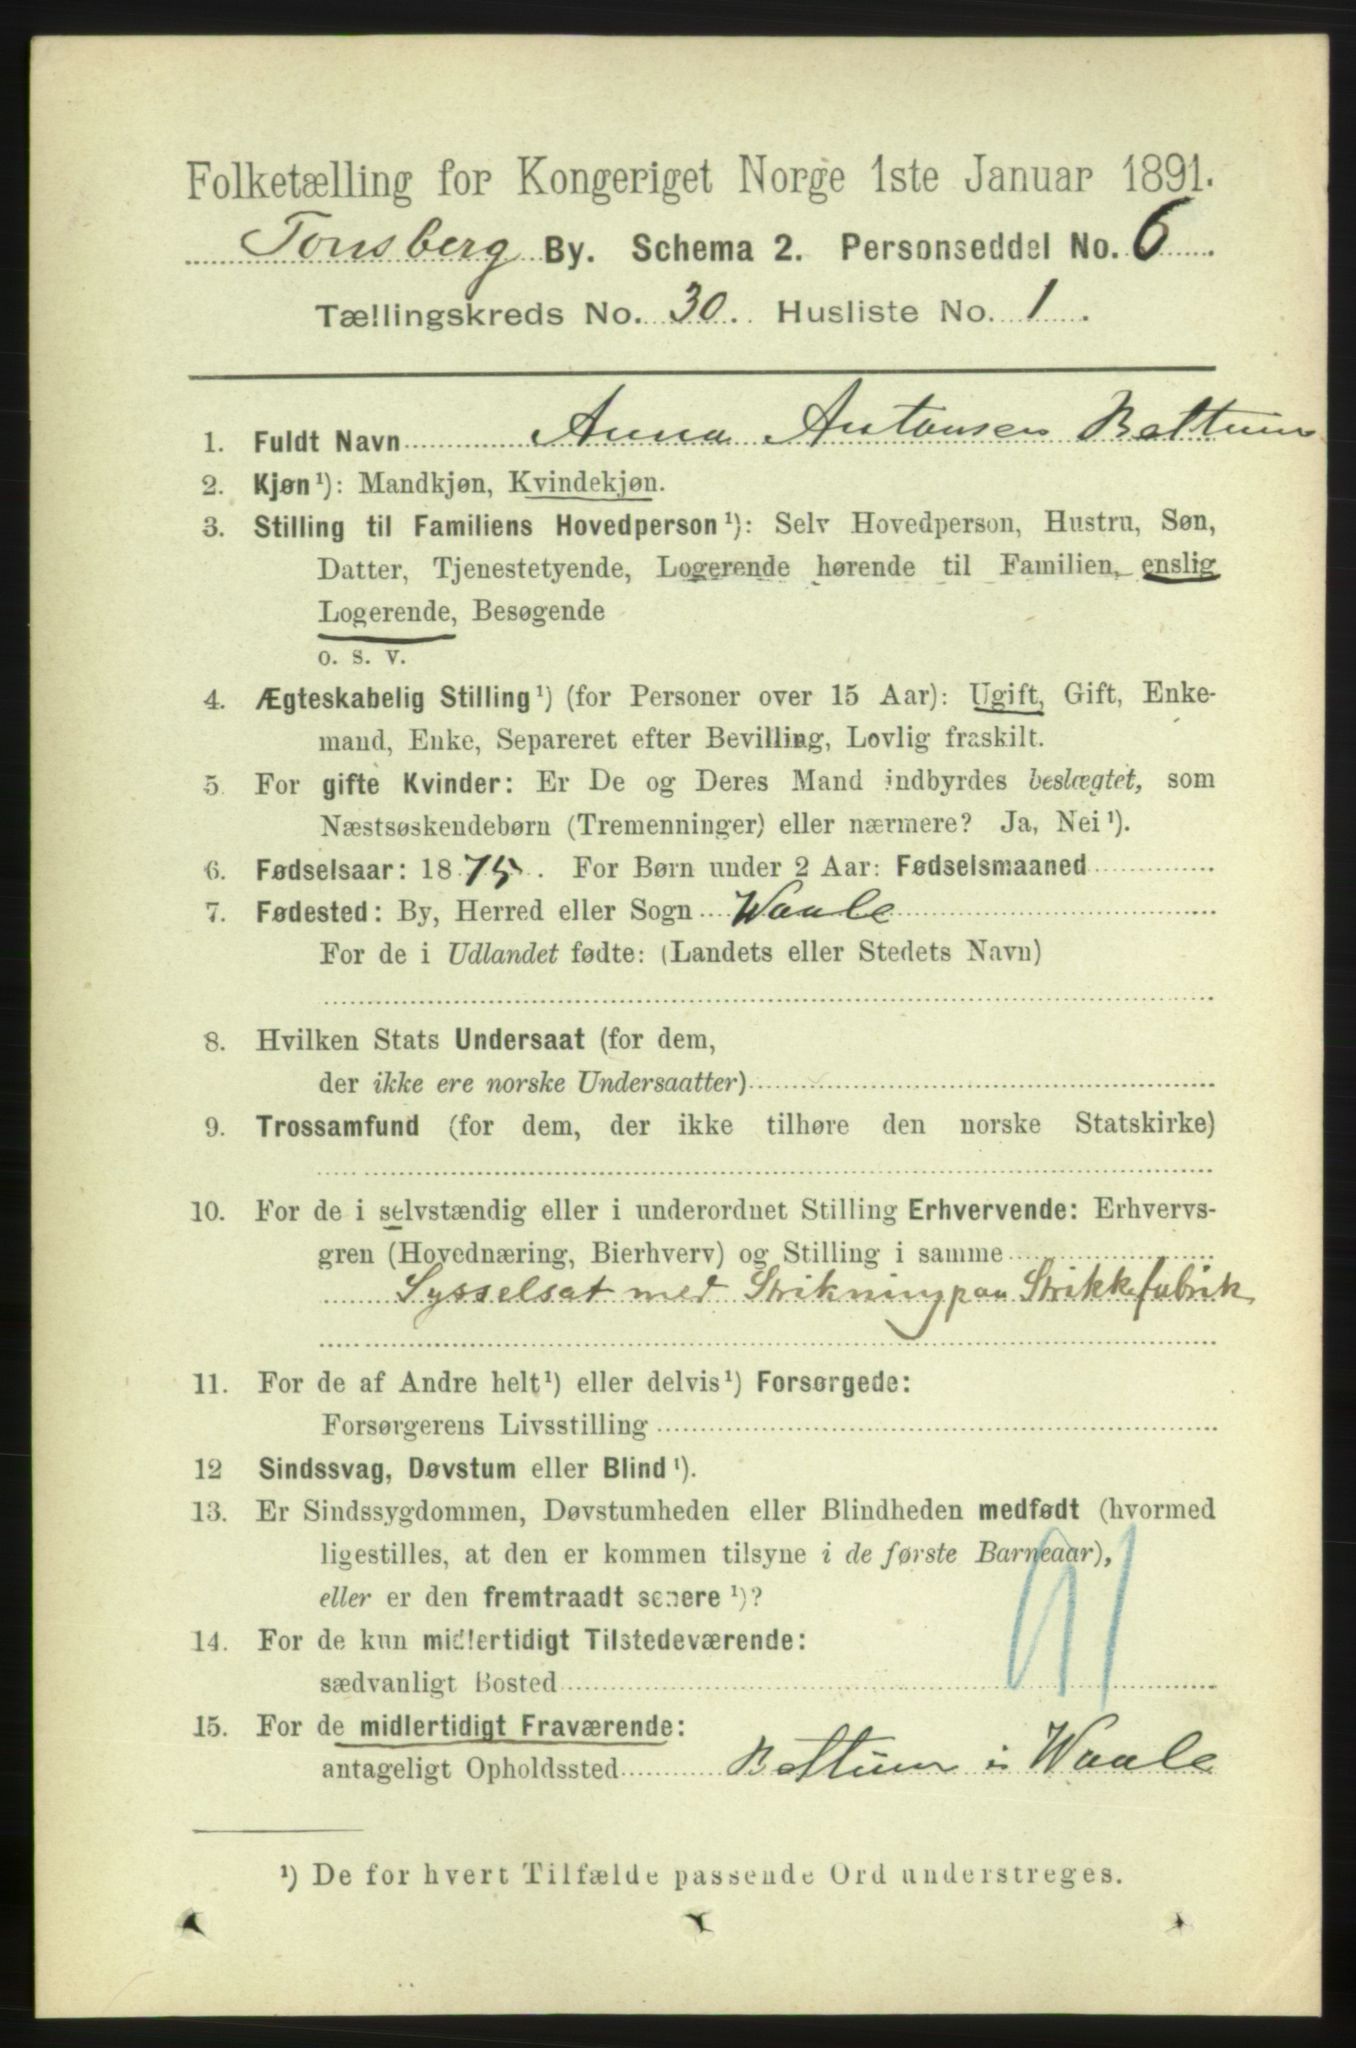 Folketælling for Kongeriget Norge 1ste Januar 1891.
Tønsberg By. Schema 2. Personseddel No. 6
Tællingskreds No. 30. Husliste No. 1.
1. Fuldt Navn Anna Antonsen Bettum
2. Kjøn¹): Mandkjøn, Kvindekjøn.
3. Stilling til Familiens Hovedperson¹): Selv Hovedperson, Hustru, Søn,
Datter, Tjenestetyende, Logerende hørende til Familien, enslig
Logerende, Besøgende
o. s. v.
4. Ægteskabelig Stilling¹) (for Personer over 15 Aar): Ugift, Gift, Enke-
mand, Enke, Separeret efter Bevilling, Lovlig fraskilt.
5. For gifte Kvinder: Er De og Deres Mand indbyrdes beslægtet, som
Næstsøskendebørn (Tremenninger) eller nærmere? Ja, Nei¹).
6. Fødselsaar: 1875. For Børn under 2 Aar: Fødselsmaaned
7. Fødested: By, Herred eller Sogn Waale
For de i Udlandet fødte: (Landets eller Stedets Navn)
8. Hvilken Stats Undersaat (for dem,
der ikke ere norske Undersaatter)
9. Trossamfund (for dem, der ikke tilhøre den norske Statskirke)
10. For de i selvstændig eller i underordnet Stilling Erhvervende: Erhvervs-
gren (Hovednæring, Bierhverv) og Stilling i samme
Sysselsat med Strikning paa Strikkefabrik
11. For de af Andre helt¹) eller delvis¹) Forsørgede:
Forsørgerens Livsstilling
12 Sindssvag, Døvstum eller Blind¹).
13. Er Sindssygdommen, Døvstumheden eller Blindheden medfødt (hvormed
ligestilles, at den er kommen tilsyne i de første Barneaar),
eller er den fremtraadt senere¹)?
14. For de kun midlertidigt Tilstedeværende:
sædvanligt Bosted
91
15. For de midlertidigt Fraværende:
antageligt Opholdssted Bettum i Waale
¹) De for hvert Tilfælde passende Ord understreges.